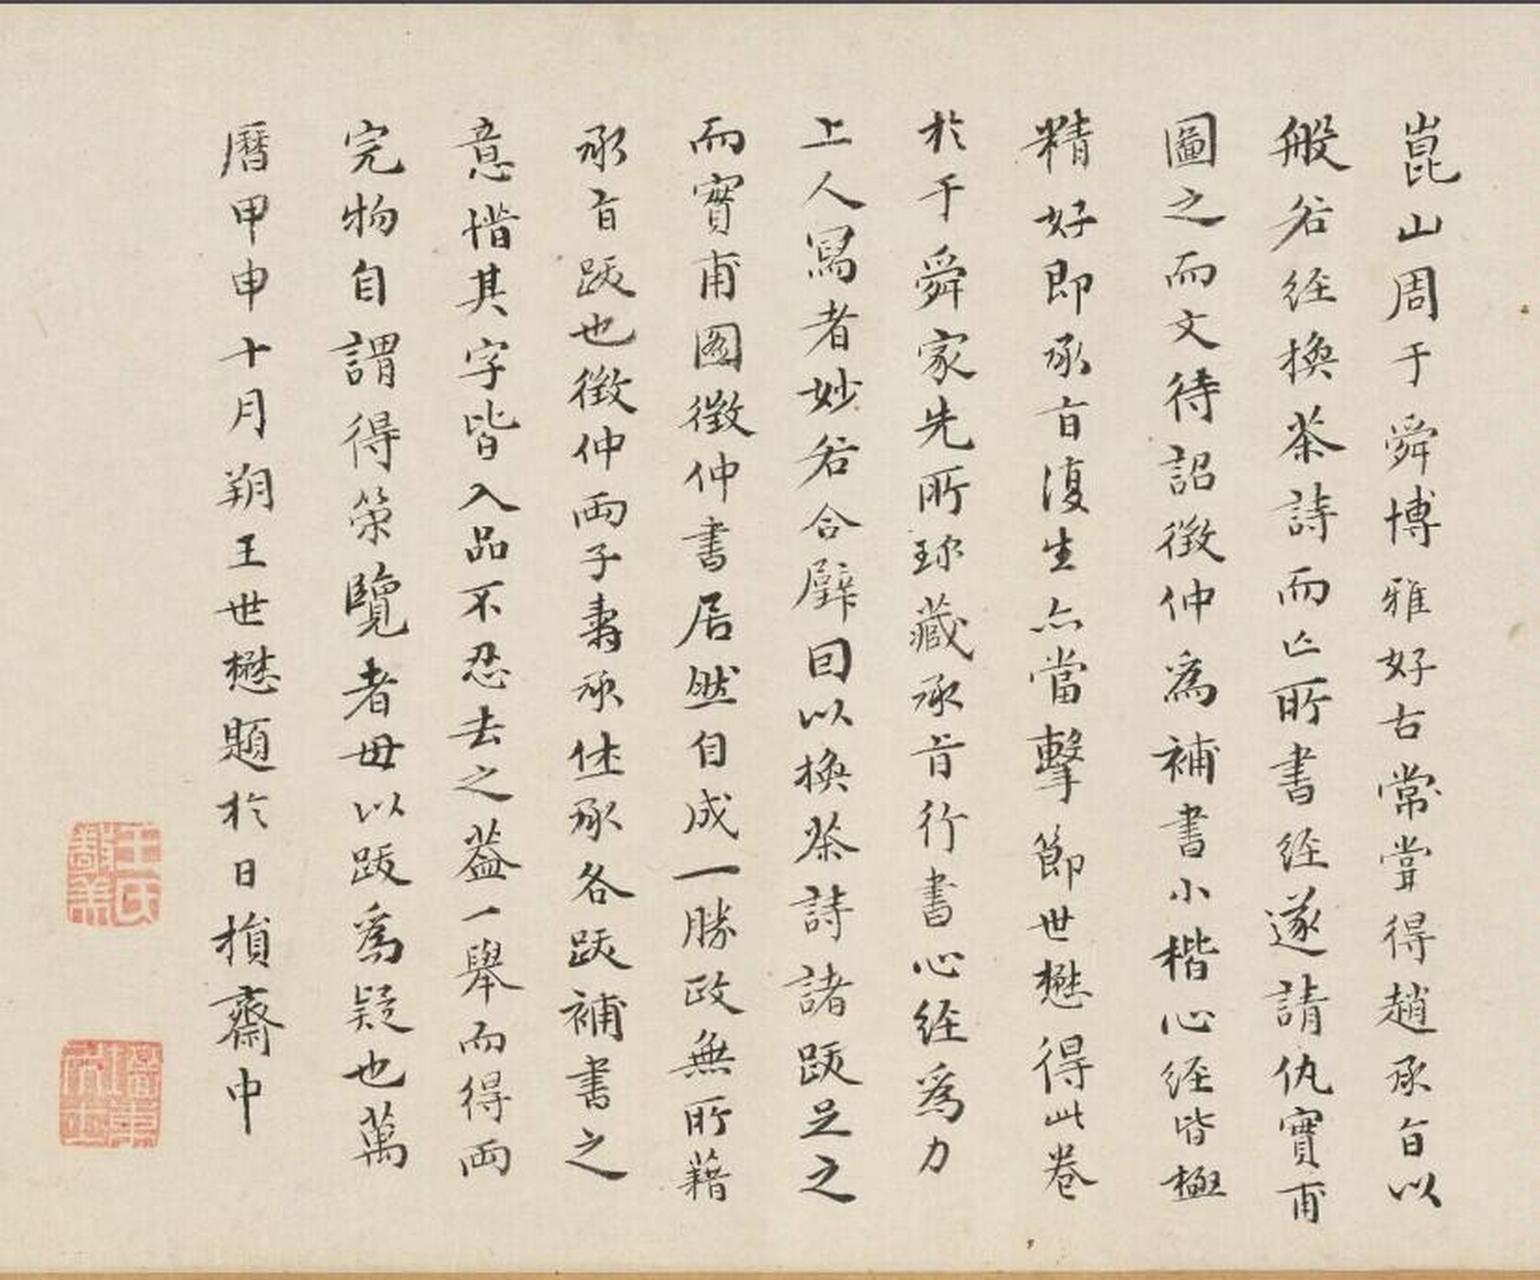 崑山周于舜博雅好古常嘗得趙承旨以
般若經換茶詩而亡所書經遂請仇實甫
圖之而文待詔徵仲為補書小楷心經皆極
精好即承旨復生亦當擊節世懋得此卷
於于舜家先所珍藏承旨行書心經為力
上人寫者妙若合璧因以換茶詩諸跋足之
而實甫圖徵仲書居然自成一勝政無所藉
承旨跋也徵仲兩子壽承休承各跋補書之
意惜其字皆入品不忍去之蓋一舉而得兩
完物自謂得策覽者毋以跋為疑也萬
曆甲申十月朔王世懋題於日損齋中
王氏敬美